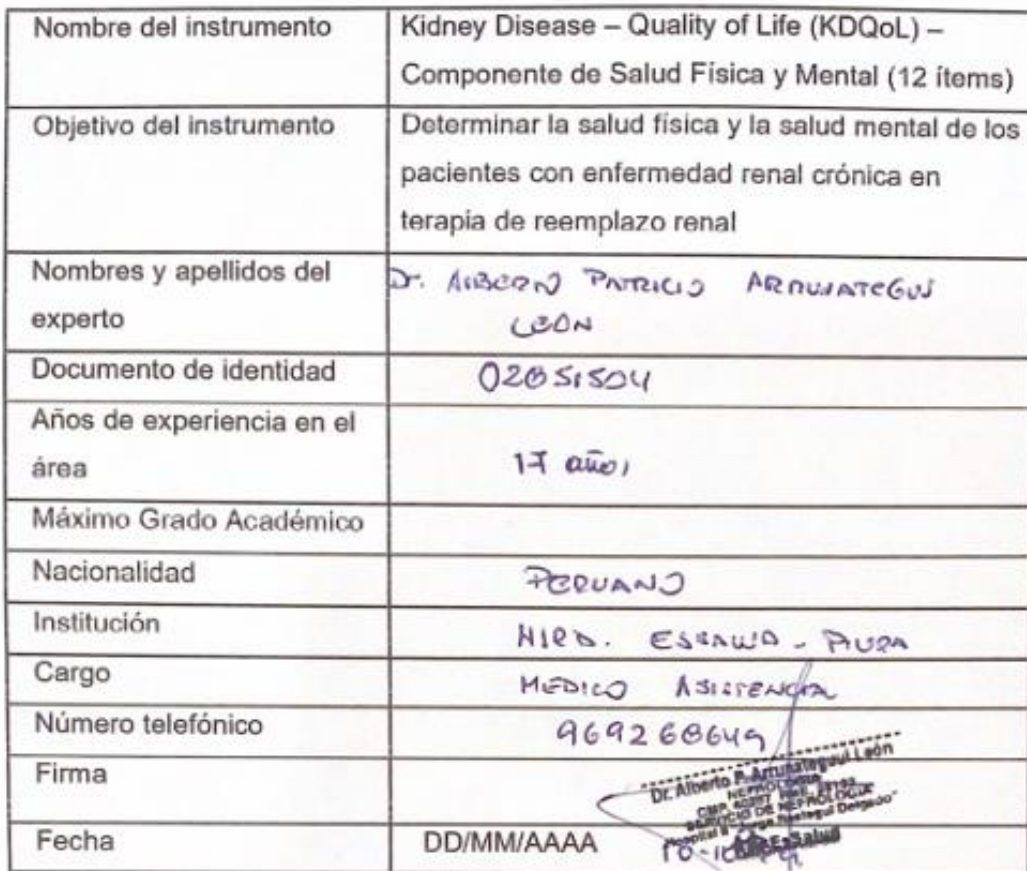 Nombre del instrumento
Kidney Disease – Quality of Life (KDQoL) –
Componente de Salud Física y Mental (12 ítems)
Objetivo del instrumento
Determinar la salud física y la salud mental de los
pacientes con enfermedad renal crónica en
terapia de reemplazo renal
Nombres y apellidos del
experto
Dr. PATRICIO
LEÓN
Documento de identidad
Años de experiencia en el
área
17 años
Máximo Grado Académico
Nacionalidad
PERUANO
Institución
ESSALUD - PIURA
Cargo
MEDICO ASISTENCIA
Número telefónico
969268649
Firma
Dr. Alberto P. León
NEFROLOGIA
SERVICIO DE NEFROLOGIA
Fecha
DD/MM/AAAA